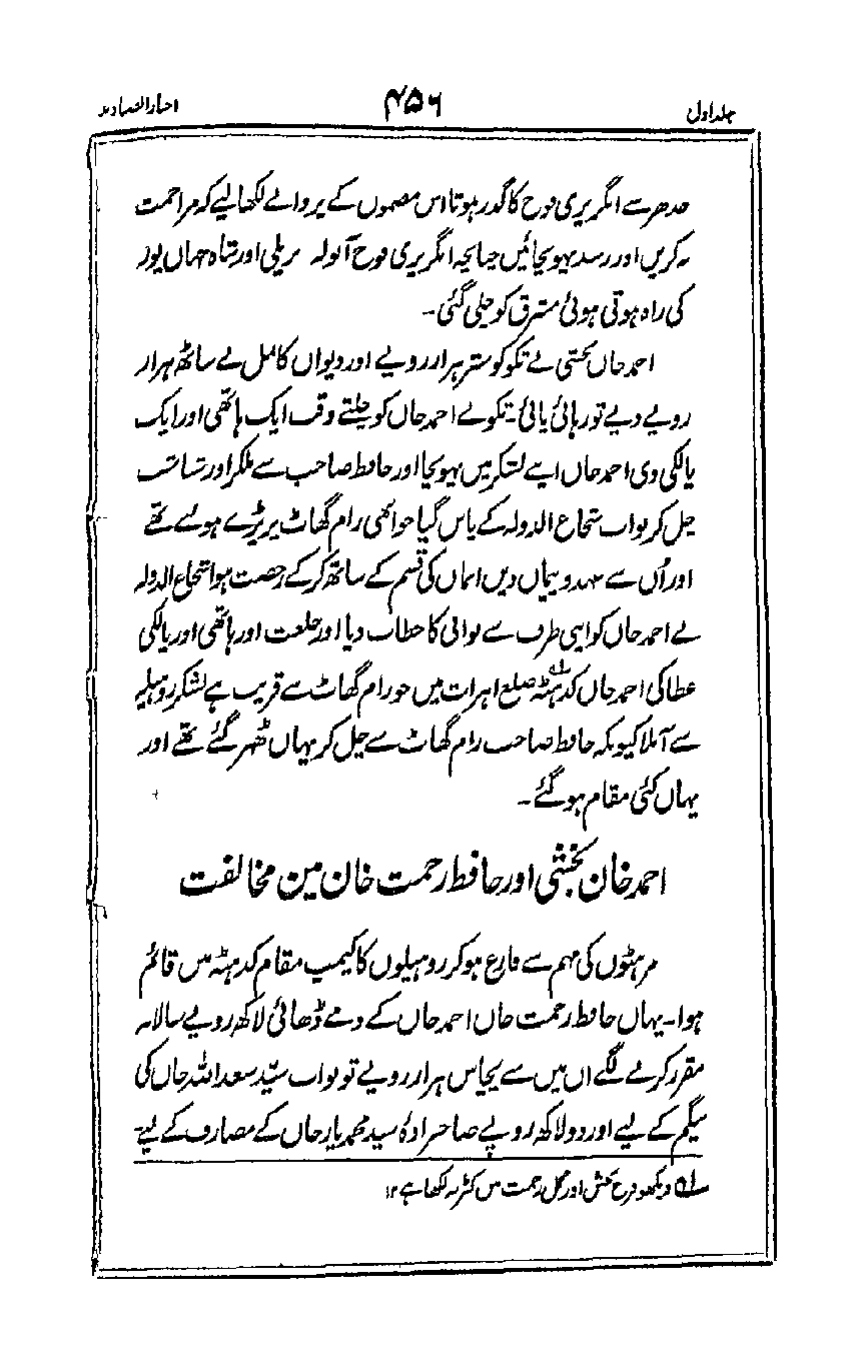 جلد اول ۴۵۶ اخبار الصنادید
جدھر سے انگریزی فوج کا گذر ہوتا اس مضمون کے پروانے لکھا لیے کہ مزاحمت
نہ کریں اور رسد پہونچائیں چنانچہ انگریزی فوج آنولہ بریلی اور شاہ جہاں پور
کی راہ ہوتی ہوئی مشرق کو چلی گئی۔
احمد خاں بخشی نے تکو کو ستر ہزار روپے اور دیوان کامل نے ساٹھ ہزار
روپے دیے تو رہائی پائی۔ تکو نے احمد خاں کو چلتے وقت ایک ہاتھی اور ایک
پالکی دی احمد خاں اپنے لشکر میں پہونچا اور حافظ صاحب سے ملکر اور شتاشب
چل کر نواب شجاع الدولہ کے پاس گیا جو ابھی رام گھاٹ پر پڑے ہوئے تھے
اور اُن سے عہد و پیماں دین ایماں کی قسم کے ساتھ کرکے رخصت ہوا شجاع الدولہ
نے احمد خاں کو اپنی طرف سے نوابی کا خطاب دیا اور خلعت اور ہاتھی اور پالکی
عطا کی احمد خاں کدہٹہ ضلع میں جو رام گھاٹ سے قریب ہے لشکر روہیلہ
سے آملا کیونکہ حافظ صاحب رام گھاٹ سے چل کر یہاں ٹھہر گئے تھے اور
یہاں کئی مقام ہو گئے۔
احمد خان بخشی اور حافظ رحمت خان مین مخالفت
مرہٹوں کی مہم سے فارغ ہو کر روہیلوں کا کیمپ مقام کدہٹہ میں قائم
ہوا۔ یہاں حافظ رحمت خاں احمد خاں کے ذمے ڈھائی لاکھ روپے سالانہ
مقرر کرنے لگے ان میں سے پچاس ہزار روپے تو نواب سیّد سعد اللہ خاں کی
بیگم کے لیے اور دو لاکھ روپے صاحبزادہ سید محمد یار خاں کے مصارف کے لیے
لہ دیکھو فرح بخش اور گل رحمت میں لکھا ہے ۱۲